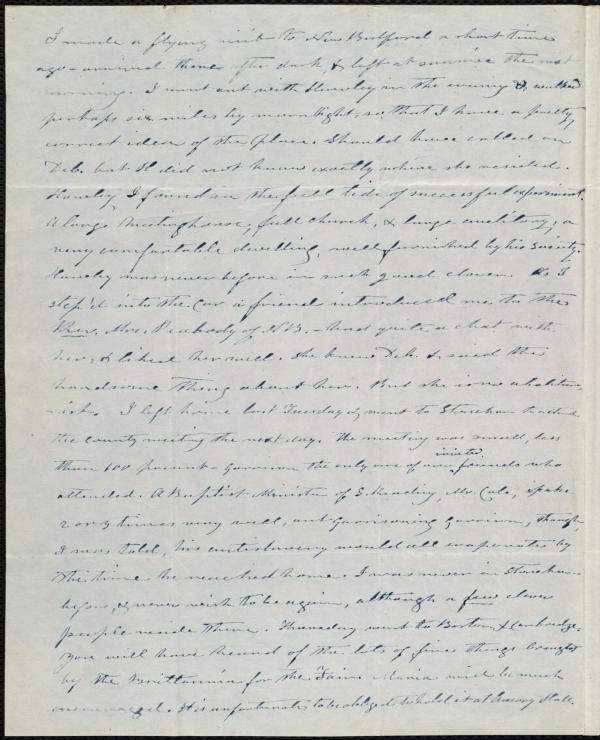 I made a flying visit to New Bedford a short time
ago - arrived there after dark, & left at sunrise the next
morning. I went out with in the evening & walked
perhaps six miles by moonlight, so that I have a pretty
correct idea of the place. Should have called on
Deb. but did not know exactly where she resided.
I found in the full tide of successful experiment.
A large meetinghouse, full church, & large auditory; a
very comfortable dwelling, well furnished by his Society.
was never before in such good clover. As I
step'd into the Car a friend introduced me to the
Rev. Mrs. Peabody of N.B. - had quite a chat with
her, & liked her well. She knew Deb. & said the
handsome thing about her. But she is no abolition-
ist. I left home last Tuesday & went to Stoneham to attend
the county meeting the next day. The meeting was small, less
than 100 present - Garrison the only one of our invited friends who
attended. A Baptist Minister of S. Reading, Mr. spoke
2 or 3 times very well, out Garrisoning Garrison, though,
I was told, his antislavery would all evaporate by
the time he reached home. I was never in Stoneham
before, & never wish to be again, although a few clever
people reside there. Thursday went to Boston & Cambridge.
You will have heard of the lots of fine things brought
by the Brittannia for the Fair. Maria will be much
encouraged. It is unfortunate to be obliged to hold it at Amory Hall.